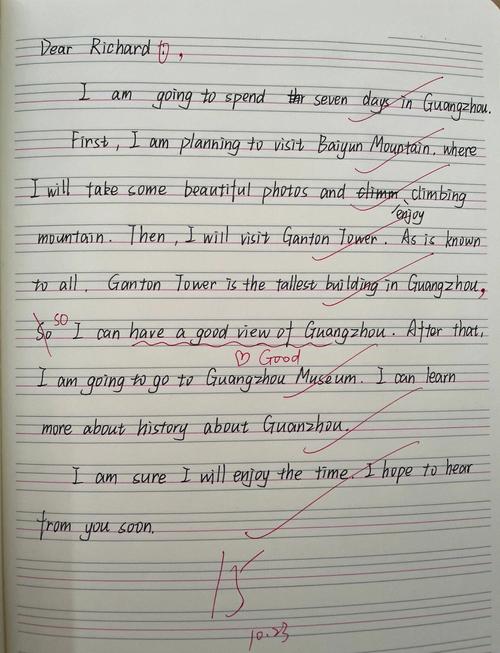 Dear Richard,
I am going to spend thr seven days in Guangzhou.
First, I am planning to visit Baiyun Mountain, where
I will take some beautiful photos and climm climbing
enjoy
mountain. Then, I will visit Ganton Tower. As is known
to all. Ganton Tower is the tallest building in Guangzhou,
So so I can have a good view of Guangzhou. After that,
♡ Good
I am going to go to Guangzhou Museum. I can learn
more about history about Guanzhou.
I am sure I will enjoy the time. I hope to hear
from you soon.
15
10.23